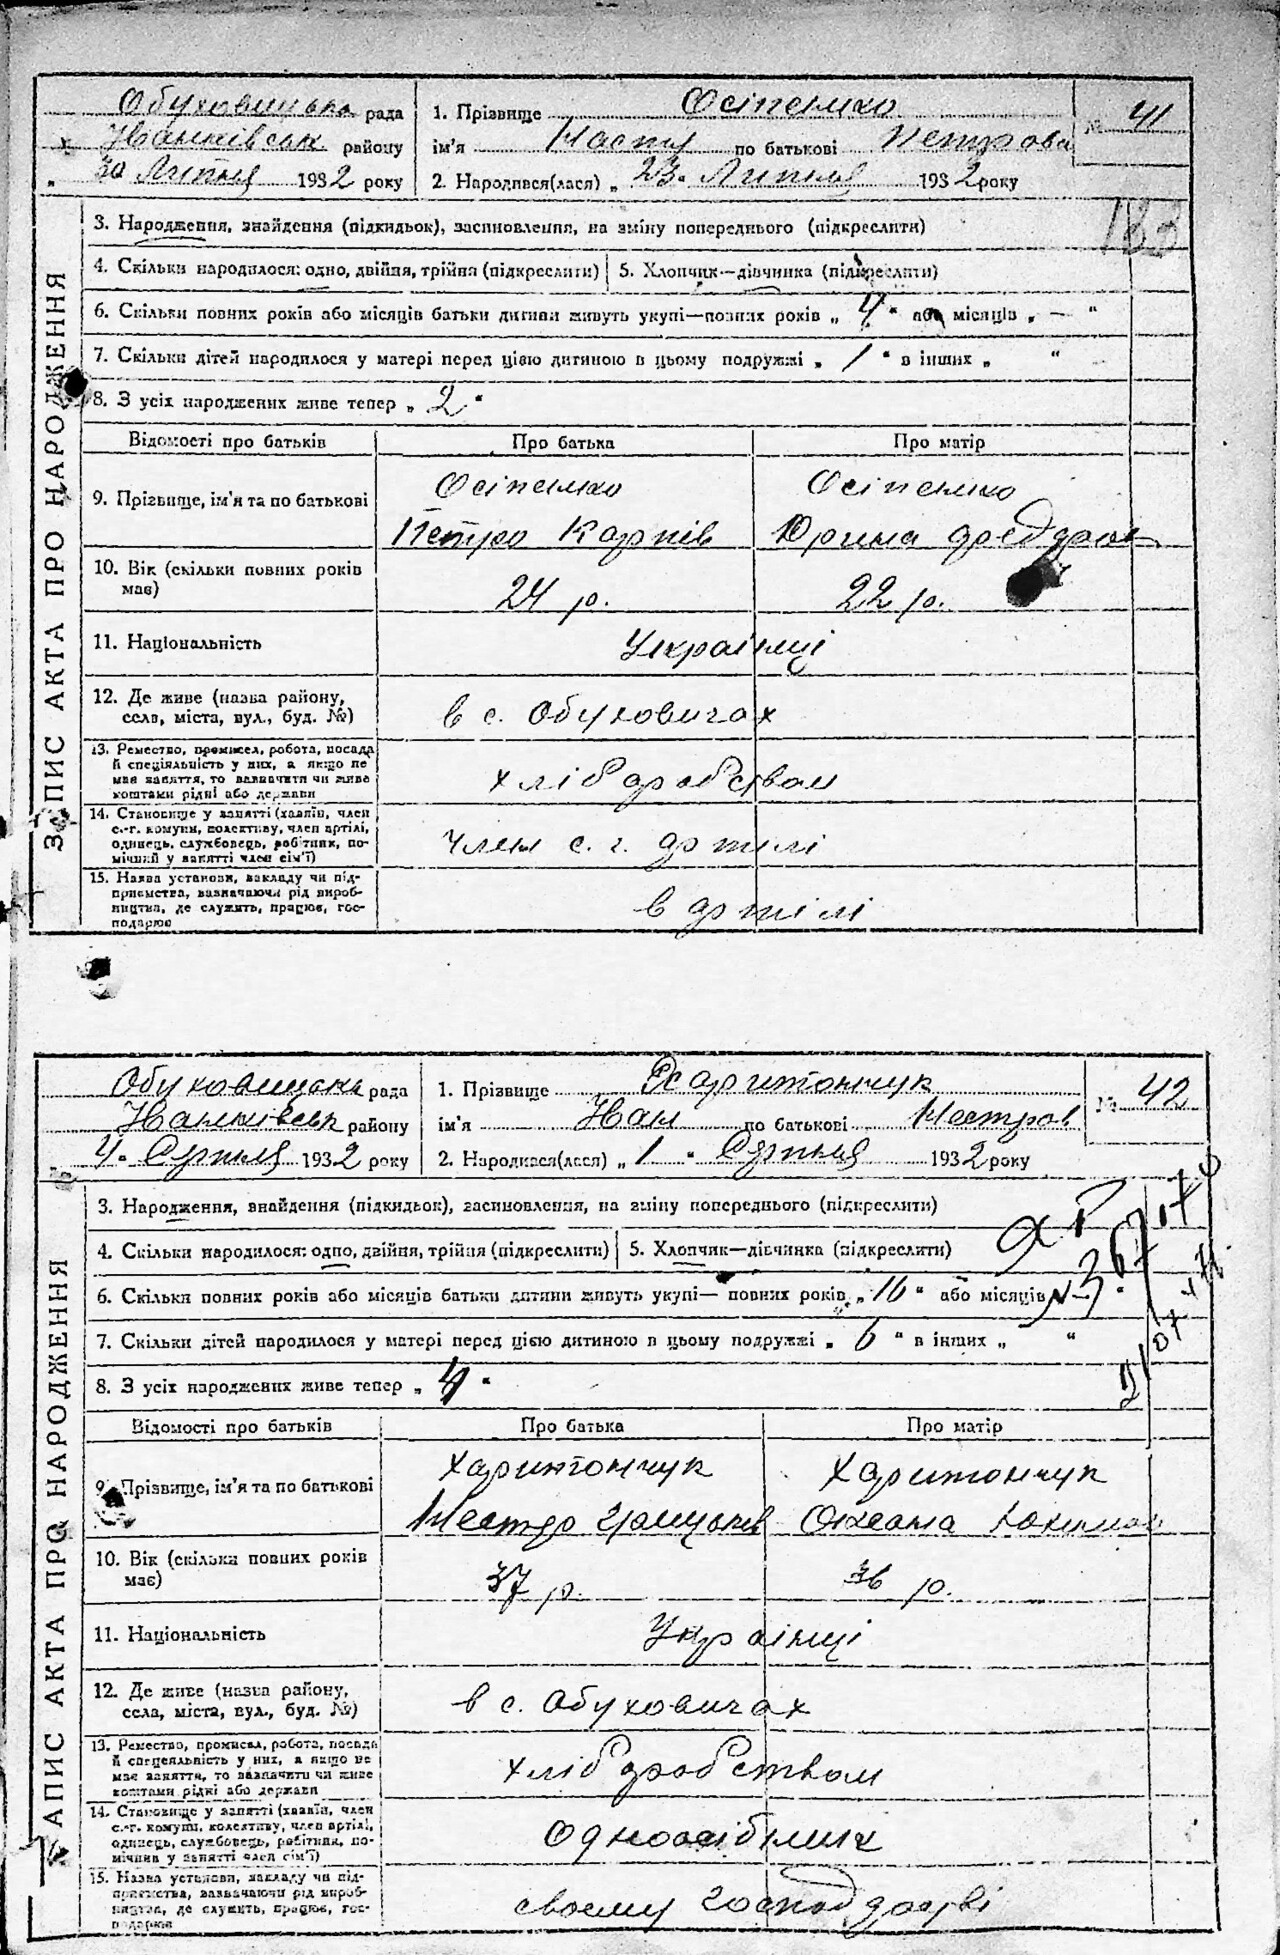 Обуховицька рада
Іванківськ району
„ 30 Липня 1932 року
1. Прізвище Осіпенко
ім'я Насту по батькові Петрова
2. Народився(лася) „ 23 „ Липня 1932 року
№ 41
183
ЗАПИС АКТА ПРО НАРОДЖЕННЯ
3. Народження, знайдення (підкидьок), засиновлення, на зміну попереднього (підкреслити)
4. Скільки народилося: одно, двійня, трійня (підкреслити) 5. Хлопчик—дівчинка (підкреслити)
6. Скільки повних років або місяців батьки дитини живуть укупі—повних років „ 4 “ або місяців „ — “
7. Скільки дітей народилося у матері перед цією дитиною в цьому подружжі „ 1 “ в інших „ “
8. З усіх народжених живе тепер „ 2 “
Відомості про батьків Про батька Про матір
9. Прізвище, ім'я та по батькові
Осіпенко Осіпенко
Петро Карпів Юрина
10. Вік (скільки повних років має) 24 р. 22 р.
11. Національність Українці
12. Де живе (назва району, села, міста, вул., буд. №) в с. Обуховичах
13. Ремество, промисел, робота, посада
й спеціяльність у них, а якщо не
має заняття, то зазначити чи живе
коштами рідні або держави
хліборобством
14. Становище у занятті (хазяїн, член
с.-г. комуни, колективу, член артілі,
одинець, службовець, робітник, по-
мічний у занятті член сім'ї)
член с. г. артілі
15. Назва установи, закладу чи під-
приємства, зазначаючи рід вироб-
ництва, де служить, працює, гос-
подарює
в артілі
Обуховицька рада
Іванківськ району
4 „ Серпня 1932 року
1. Прізвище Харитончук
ім'я Іван по батькові Нестров
2. Народився(лася) „ 1 „ Серпня 1932 року
№ 42
ЗАПИС АКТА ПРО НАРОДЖЕННЯ
3. Народження, знайдення (підкидьок), засиновлення, на зміну попереднього (підкреслити)
4. Скільки народилося: одно, двійня, трійня (підкреслити) 5. Хлопчик—дівчинка (підкреслити)
6. Скільки повних років або місяців батьки дитини живуть укупі—повних років „ 16 “ або місяців
7. Скільки дітей народилося у матері перед цією дитиною в цьому подружжі „ 6 “ в інших „ “
8. З усіх народжених живе тепер „ 4 “
Відомості про батьків Про батька Про матір
9. Прізвище, ім'я та по батькові
Харитончук Харитончук
Нестер Грицьків Оксана
10. Вік (скільки повних років має) 37 р. 36 р.
11. Національність Українці
12. Де живе (назва району, села, міста, вул., буд. №) в с. Обуховичах
13. Ремество, промисел, робота, посада
й спеціяльність у них, а якщо не
має заняття, то зазначити чи живе
коштами рідні або держави
хліборобством
14. Становище у занятті (хазяїн, член
с.-г. комуни, колективу, член артілі,
одинець, службовець, робітник, по-
мічник у занятті член сім'ї)
Одноосібник
15. Назва установи, закладу чи під-
приємства, зазначаючи рід вироб-
ництва, де служить, працює, гос-
подарює
своєму господарстві